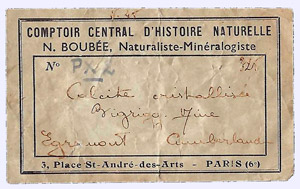 COMPTOIR CENTRAL D'HISTOIRE NATURELLE
N. BOUBÉE, Naturaliste-Minéralogiste
No
Calcite cristallisée
Bigrigg Mine
Egremont Cumberland
3, Place St-André-des-Arts - PARIS (6e)